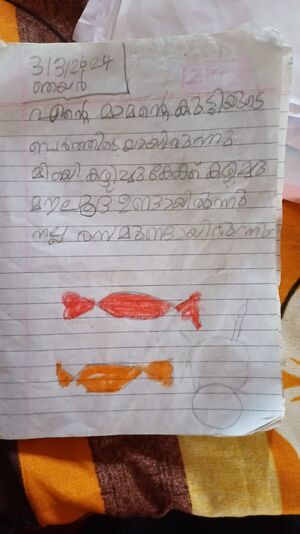 3/3/2024
ഞയർ
എന്റെ മാമന്റെ കുട്ടിയുടെ
ബെർത്തിടെയായിരുന്നു
മിഠായി കഴിച്ചു കേക്ക് കഴിച്ചു
ഉണ്ടായിരുന്നു
നല്ല രസമുണ്ടായിരുന്നു